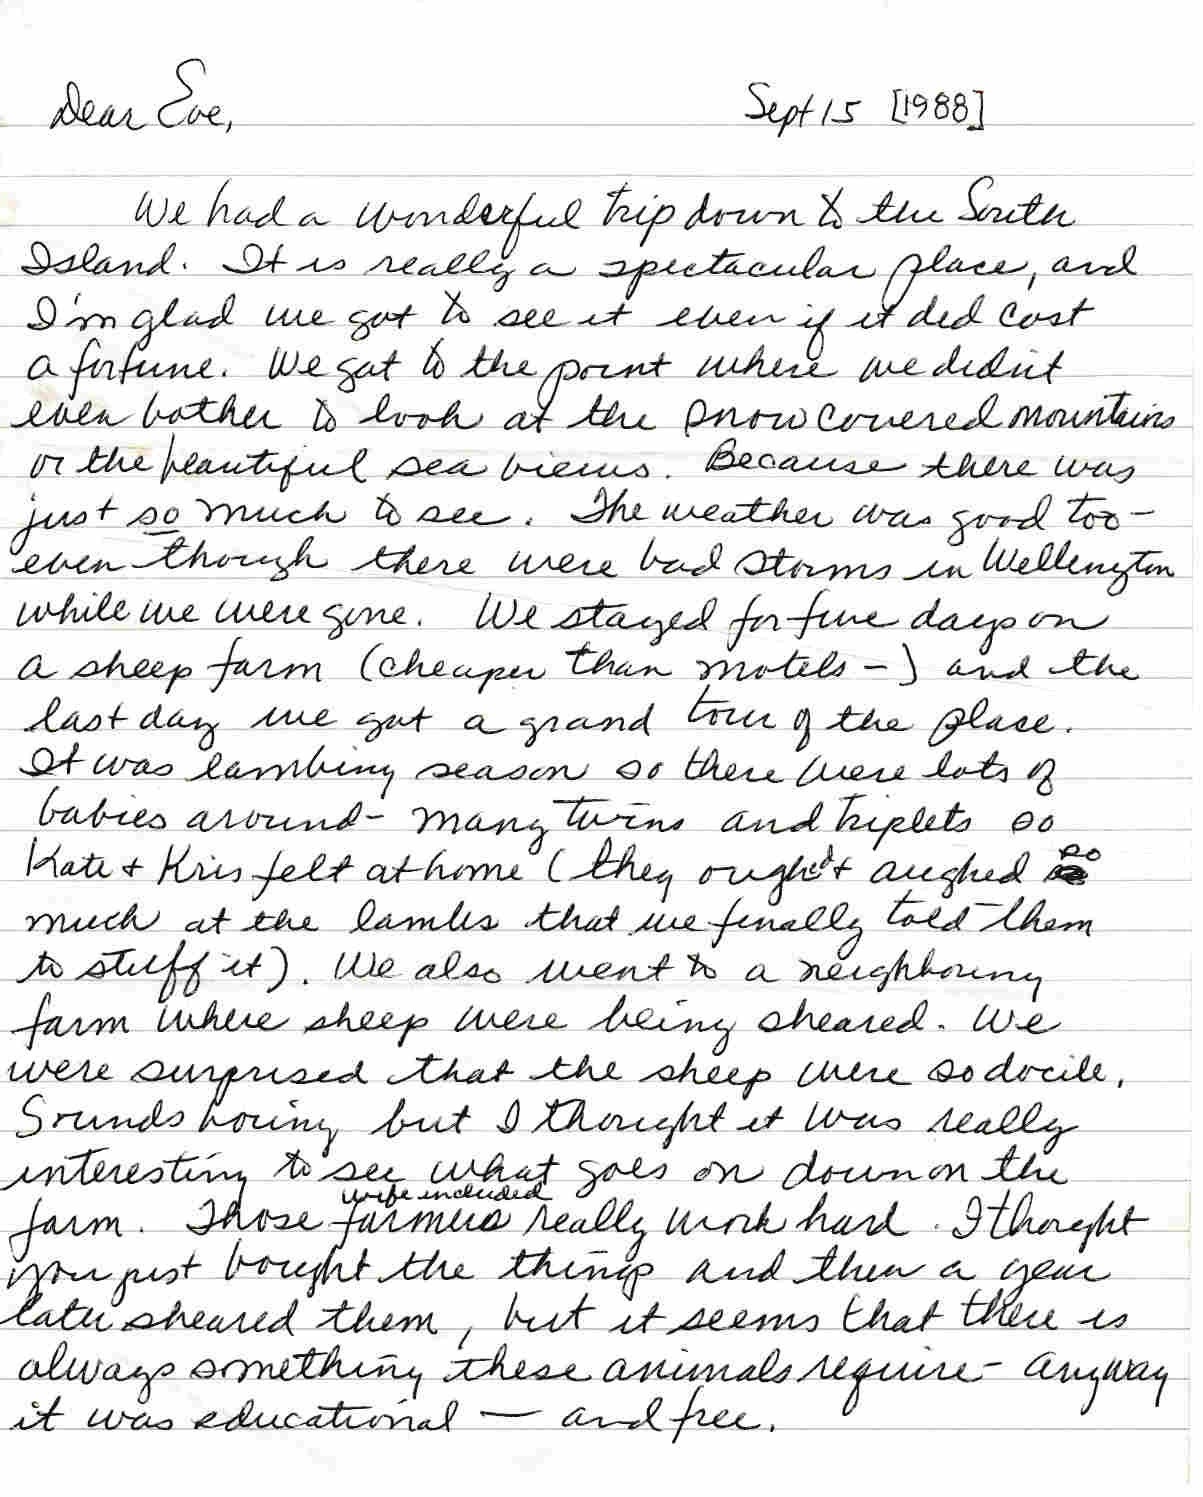 Dear Eve,
Sept 15 [1988]
We had a wonderful trip down to the South
Island. It is really a spectacular place, and
I'm glad we got to see it even if it did cost
a fortune. We got to the point where we didn't
even bother to look at the snow covered mountains
or the beautiful sea views. Because there was
just so much to see. The weather was good too -
even though there were bad storms in Wellington
while we were gone. We stayed for five days on
a sheep farm (cheaper than motels -) and the
last day we got a grand tour of the place.
It was lambing season so there were lots of
babies around - many twins and triplets so
Kate + Kris felt at home (they oughed + aughed so
much at the lambs that we finally told them
to stuff it). We also went to a neighbouring
farm where sheep were being sheared. We
were surprised that the sheep were so docile.
Sounds boring but I thought it was really
interesting to see what goes on down on the
wife included
farm. Those farmers really work hard. I thought
you just bought the things and then a year
later sheared them, but it seems that there is
always something these animals require - anyway
it was educational — and free.